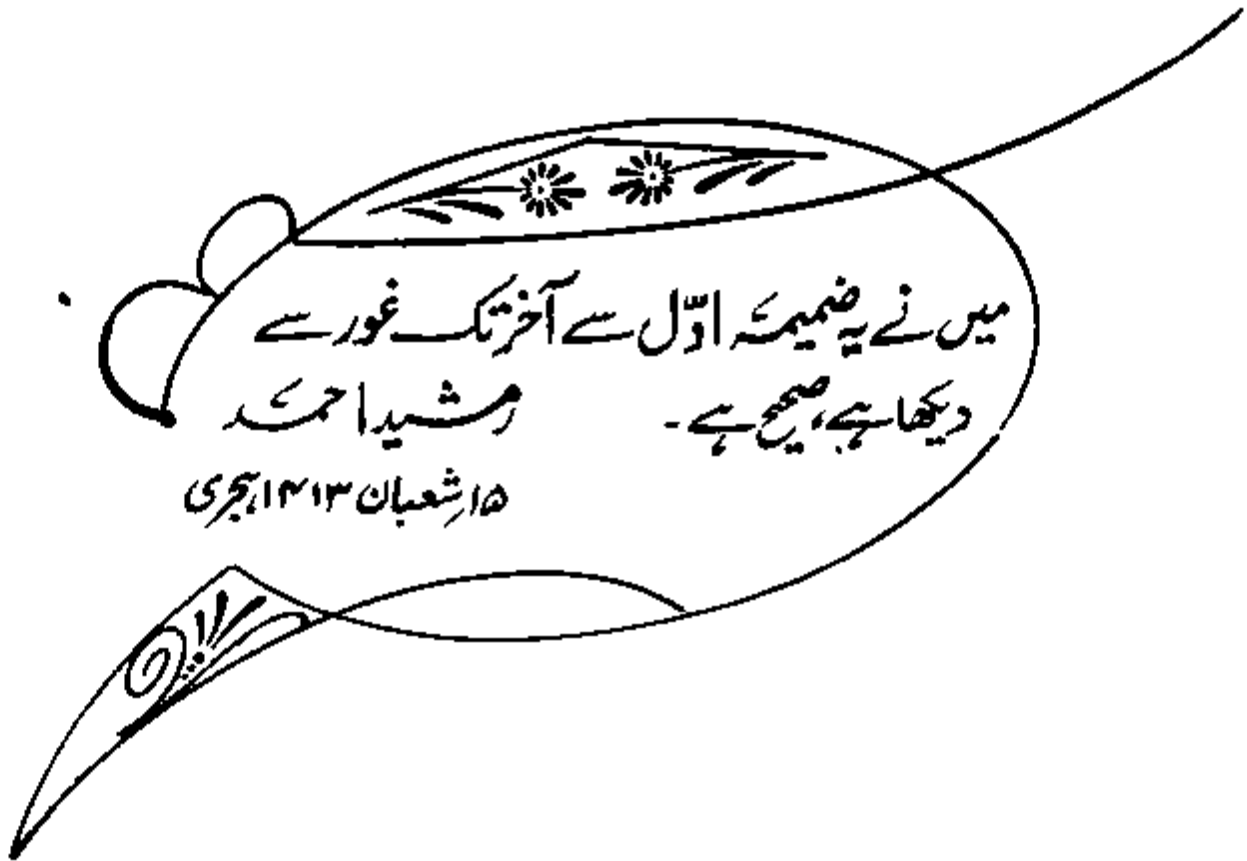 میں نے یہ ضمیمہ اوّل سے آخر تک غور سے
دیکھا ہے، صحیح ہے۔ رشید احمد
۱۵ شعبان ۱۴۱۳ ہجری